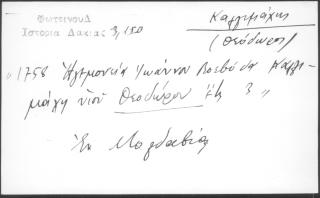 Φωτεινοῦ
Ἱστορία Δακίας 3,150
Καλλιμάχης
(Θεόδωρος)
"1758 Ἡγεμονεία Ἰωάννου Βοεβόδα Καλλι-
μάχη υἱοῦ Θεοδώρου
Ἐν Μολδαβίᾳ